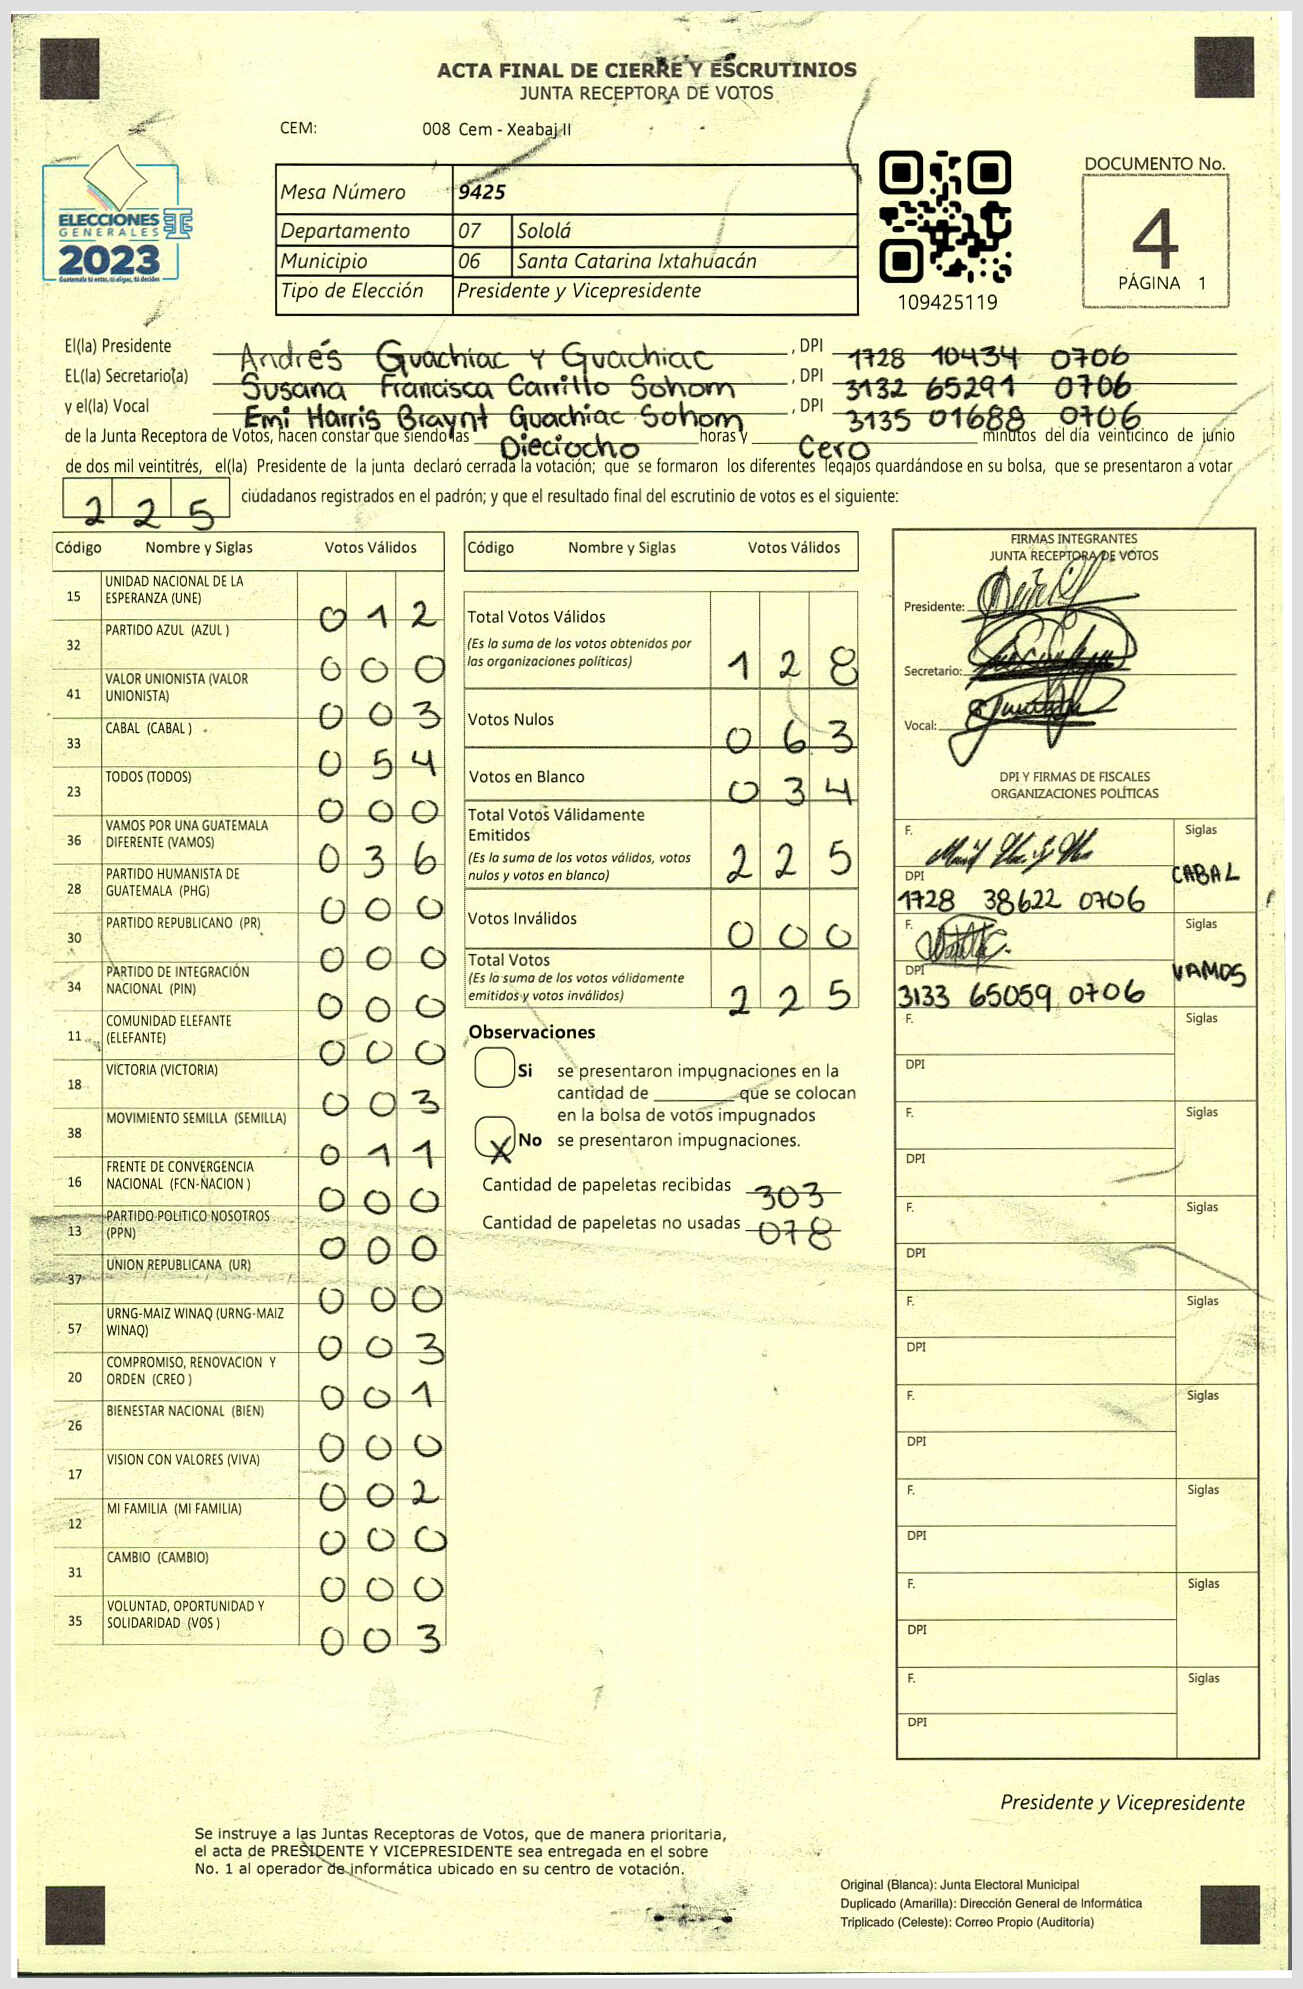 ACTA FINAL DE CIERRE Y ESCRUTINIOS
JUNTA RECEPTORA DE VOTOS
CEM: 008 Cem - Xeabaj II
ELECCIONES
GENERALES
2023
Mesa Número 9425
Departamento 07 Sololá
Municipio 06 Santa Catarina Ixtahuacán
Tipo de Elección Presidente y Vicepresidente
109425119
DOCUMENTO No.
4
PÁGINA 1
El(la) Presidente Andrés Guachiac y Guachiac , DPI 1728 10434 0706
EL(la) Secretario(a) Susana Francisca Carrillo Sohom , DPI 3132 65291 0706
y el(la) Vocal Emi Harris Braynt Guachiac Sohom , DPI 3135 01688 0706
de la Junta Receptora de Votos, hacen constar que siendo las Dieciocho horas y Cero minutos del día veinticinco de junio
de dos mil veintitrés, el(la) Presidente de la junta declaró cerrada la votación; que se formaron los diferentes legajos guardándose en su bolsa, que se presentaron a votar
225 ciudadanos registrados en el padrón; y que el resultado final del escrutinio de votos es el siguiente:
Código Nombre y Siglas Votos Válidos
15 UNIDAD NACIONAL DE LA ESPERANZA (UNE) 012
32 PARTIDO AZUL (AZUL ) 000
41 VALOR UNIONISTA (VALOR UNIONISTA) 003
33 CABAL (CABAL ) 054
23 TODOS (TODOS) 000
36 VAMOS POR UNA GUATEMALA DIFERENTE (VAMOS) 036
28 PARTIDO HUMANISTA DE GUATEMALA (PHG) 000
30 PARTIDO REPUBLICANO (PR) 000
34 PARTIDO DE INTEGRACIÓN NACIONAL (PIN) 000
11 COMUNIDAD ELEFANTE (ELEFANTE) 000
18 VICTORIA (VICTORIA) 003
38 MOVIMIENTO SEMILLA (SEMILLA) 011
16 FRENTE DE CONVERGENCIA NACIONAL (FCN-NACION ) 000
13 PARTIDO POLITICO NOSOTROS (PPN) 000
37 UNION REPUBLICANA (UR) 000
57 URNG-MAIZ WINAQ (URNG-MAIZ WINAQ) 003
20 COMPROMISO, RENOVACION Y ORDEN (CREO ) 001
26 BIENESTAR NACIONAL (BIEN) 000
17 VISION CON VALORES (VIVA) 002
12 MI FAMILIA (MI FAMILIA) 000
31 CAMBIO (CAMBIO) 000
35 VOLUNTAD, OPORTUNIDAD Y SOLIDARIDAD (VOS ) 003
Código Nombre y Siglas Votos Válidos
Total Votos Válidos
(Es la suma de los votos obtenidos por
las organizaciones políticas) 128
Votos Nulos 063
Votos en Blanco 034
Total Votos Válidamente
Emitidos
(Es la suma de los votos válidos, votos
nulos y votos en blanco) 225
Votos Inválidos 000
Total Votos
(Es la suma de los votos válidamente
emitidos y votos inválidos) 225
Observaciones
Si se presentaron impugnaciones en la
cantidad de ________ que se colocan
en la bolsa de votos impugnados
X No se presentaron impugnaciones.
Cantidad de papeletas recibidas 303
Cantidad de papeletas no usadas 078
FIRMAS INTEGRANTES
JUNTA RECEPTORA DE VOTOS
Presidente:
Secretario:
Vocal:
DPI Y FIRMAS DE FISCALES
ORGANIZACIONES POLÍTICAS
F. Siglas
CABAL
DPI
1728 38622 0706
F. Siglas
VAMOS
DPI
3133 65059 0706
F. Siglas
DPI
F. Siglas
DPI
F. Siglas
DPI
F. Siglas
DPI
F. Siglas
DPI
F. Siglas
DPI
F. Siglas
DPI
F. Siglas
DPI
Presidente y Vicepresidente
Se instruye a las Juntas Receptoras de Votos, que de manera prioritaria,
el acta de PRESIDENTE Y VICEPRESIDENTE sea entregada en el sobre
No. 1 al operador de informática ubicado en su centro de votación.
Original (Blanca): Junta Electoral Municipal
Duplicado (Amarilla): Dirección General de Informática
Triplicado (Celeste): Correo Propio (Auditoría)